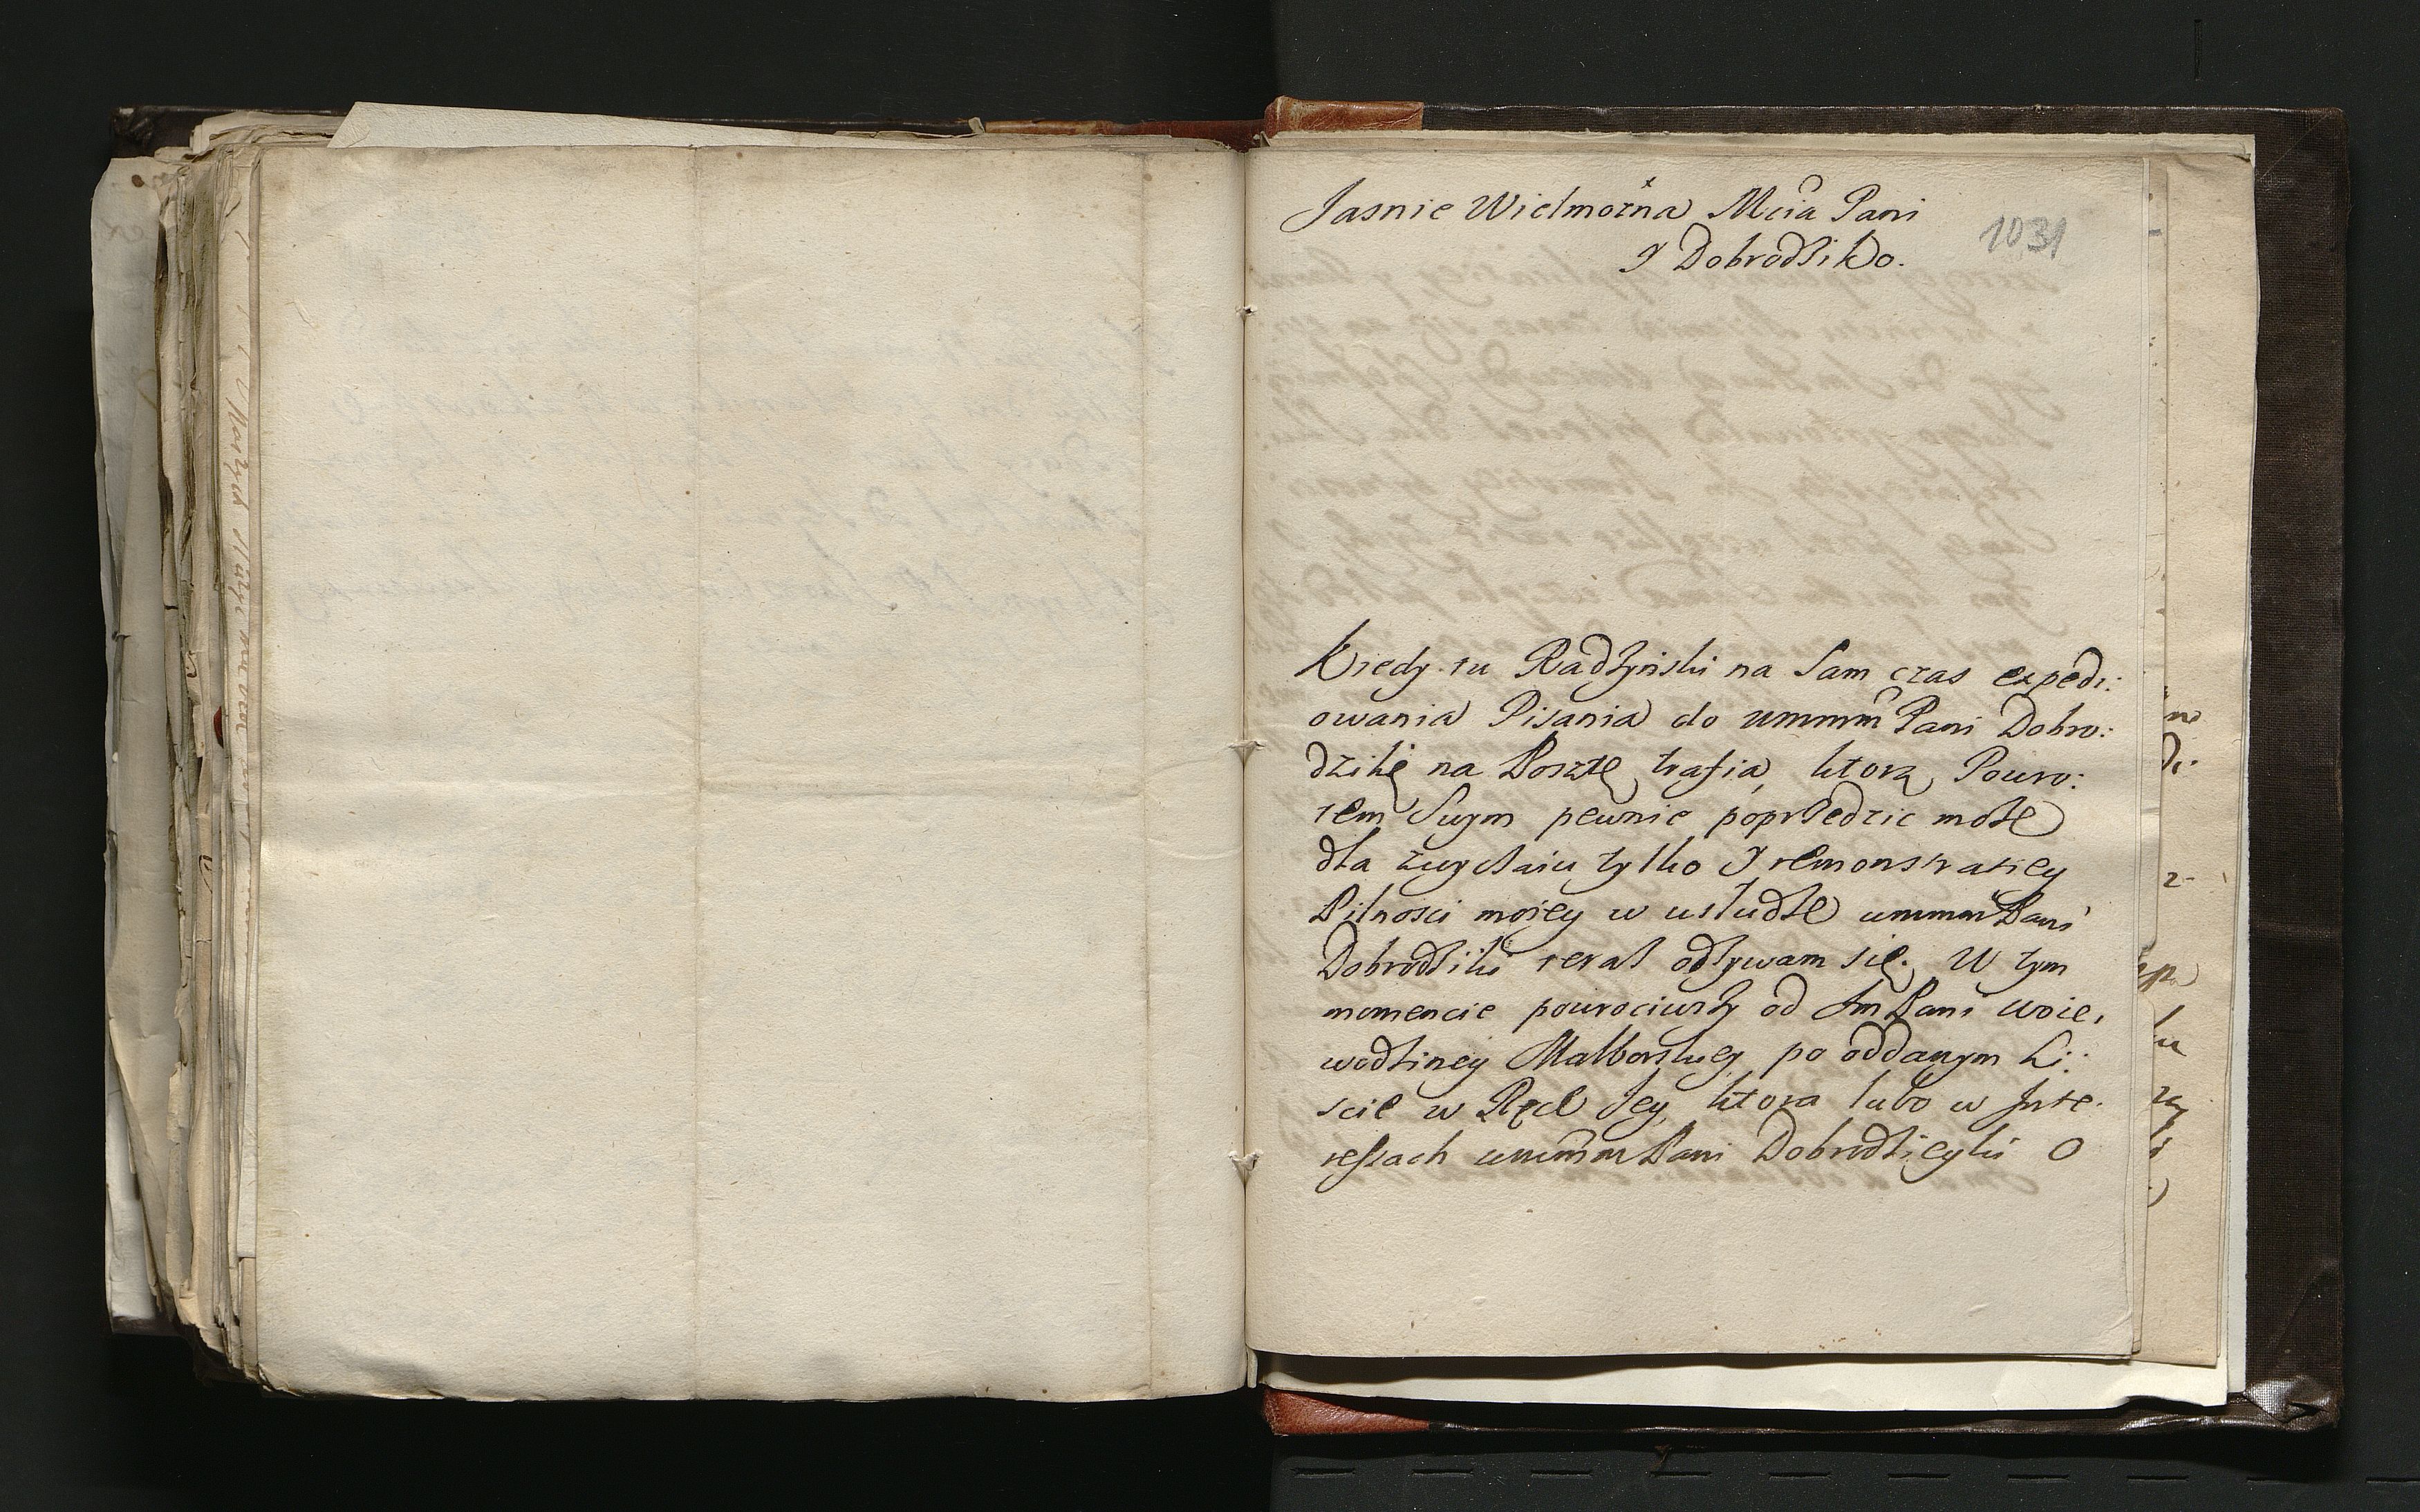 Jasnie Wielmozna Mcia Pani
I Dobrodziko.
1031
Kiedy tu Radzynski na Sam czas expedi:
owania Pisania do ummm Pani Dobro:
dziki na Posztę trafia, ktora Powro:
tem Swym pewnie poprzedzic moze
dla zwyczaiu tylko I remonstratiey
Pilnosci moiey w usludze ummm Pani
Dobrodziki teraz odzywam się. W tym
momencie powrociwszy od Jm Pani Woie,
wodziney Malborskiey, po oddanym Li:
scie w Ręce Jey, ktora lubo w Inte:
ressach ummm Pani Dobrodzieyki O